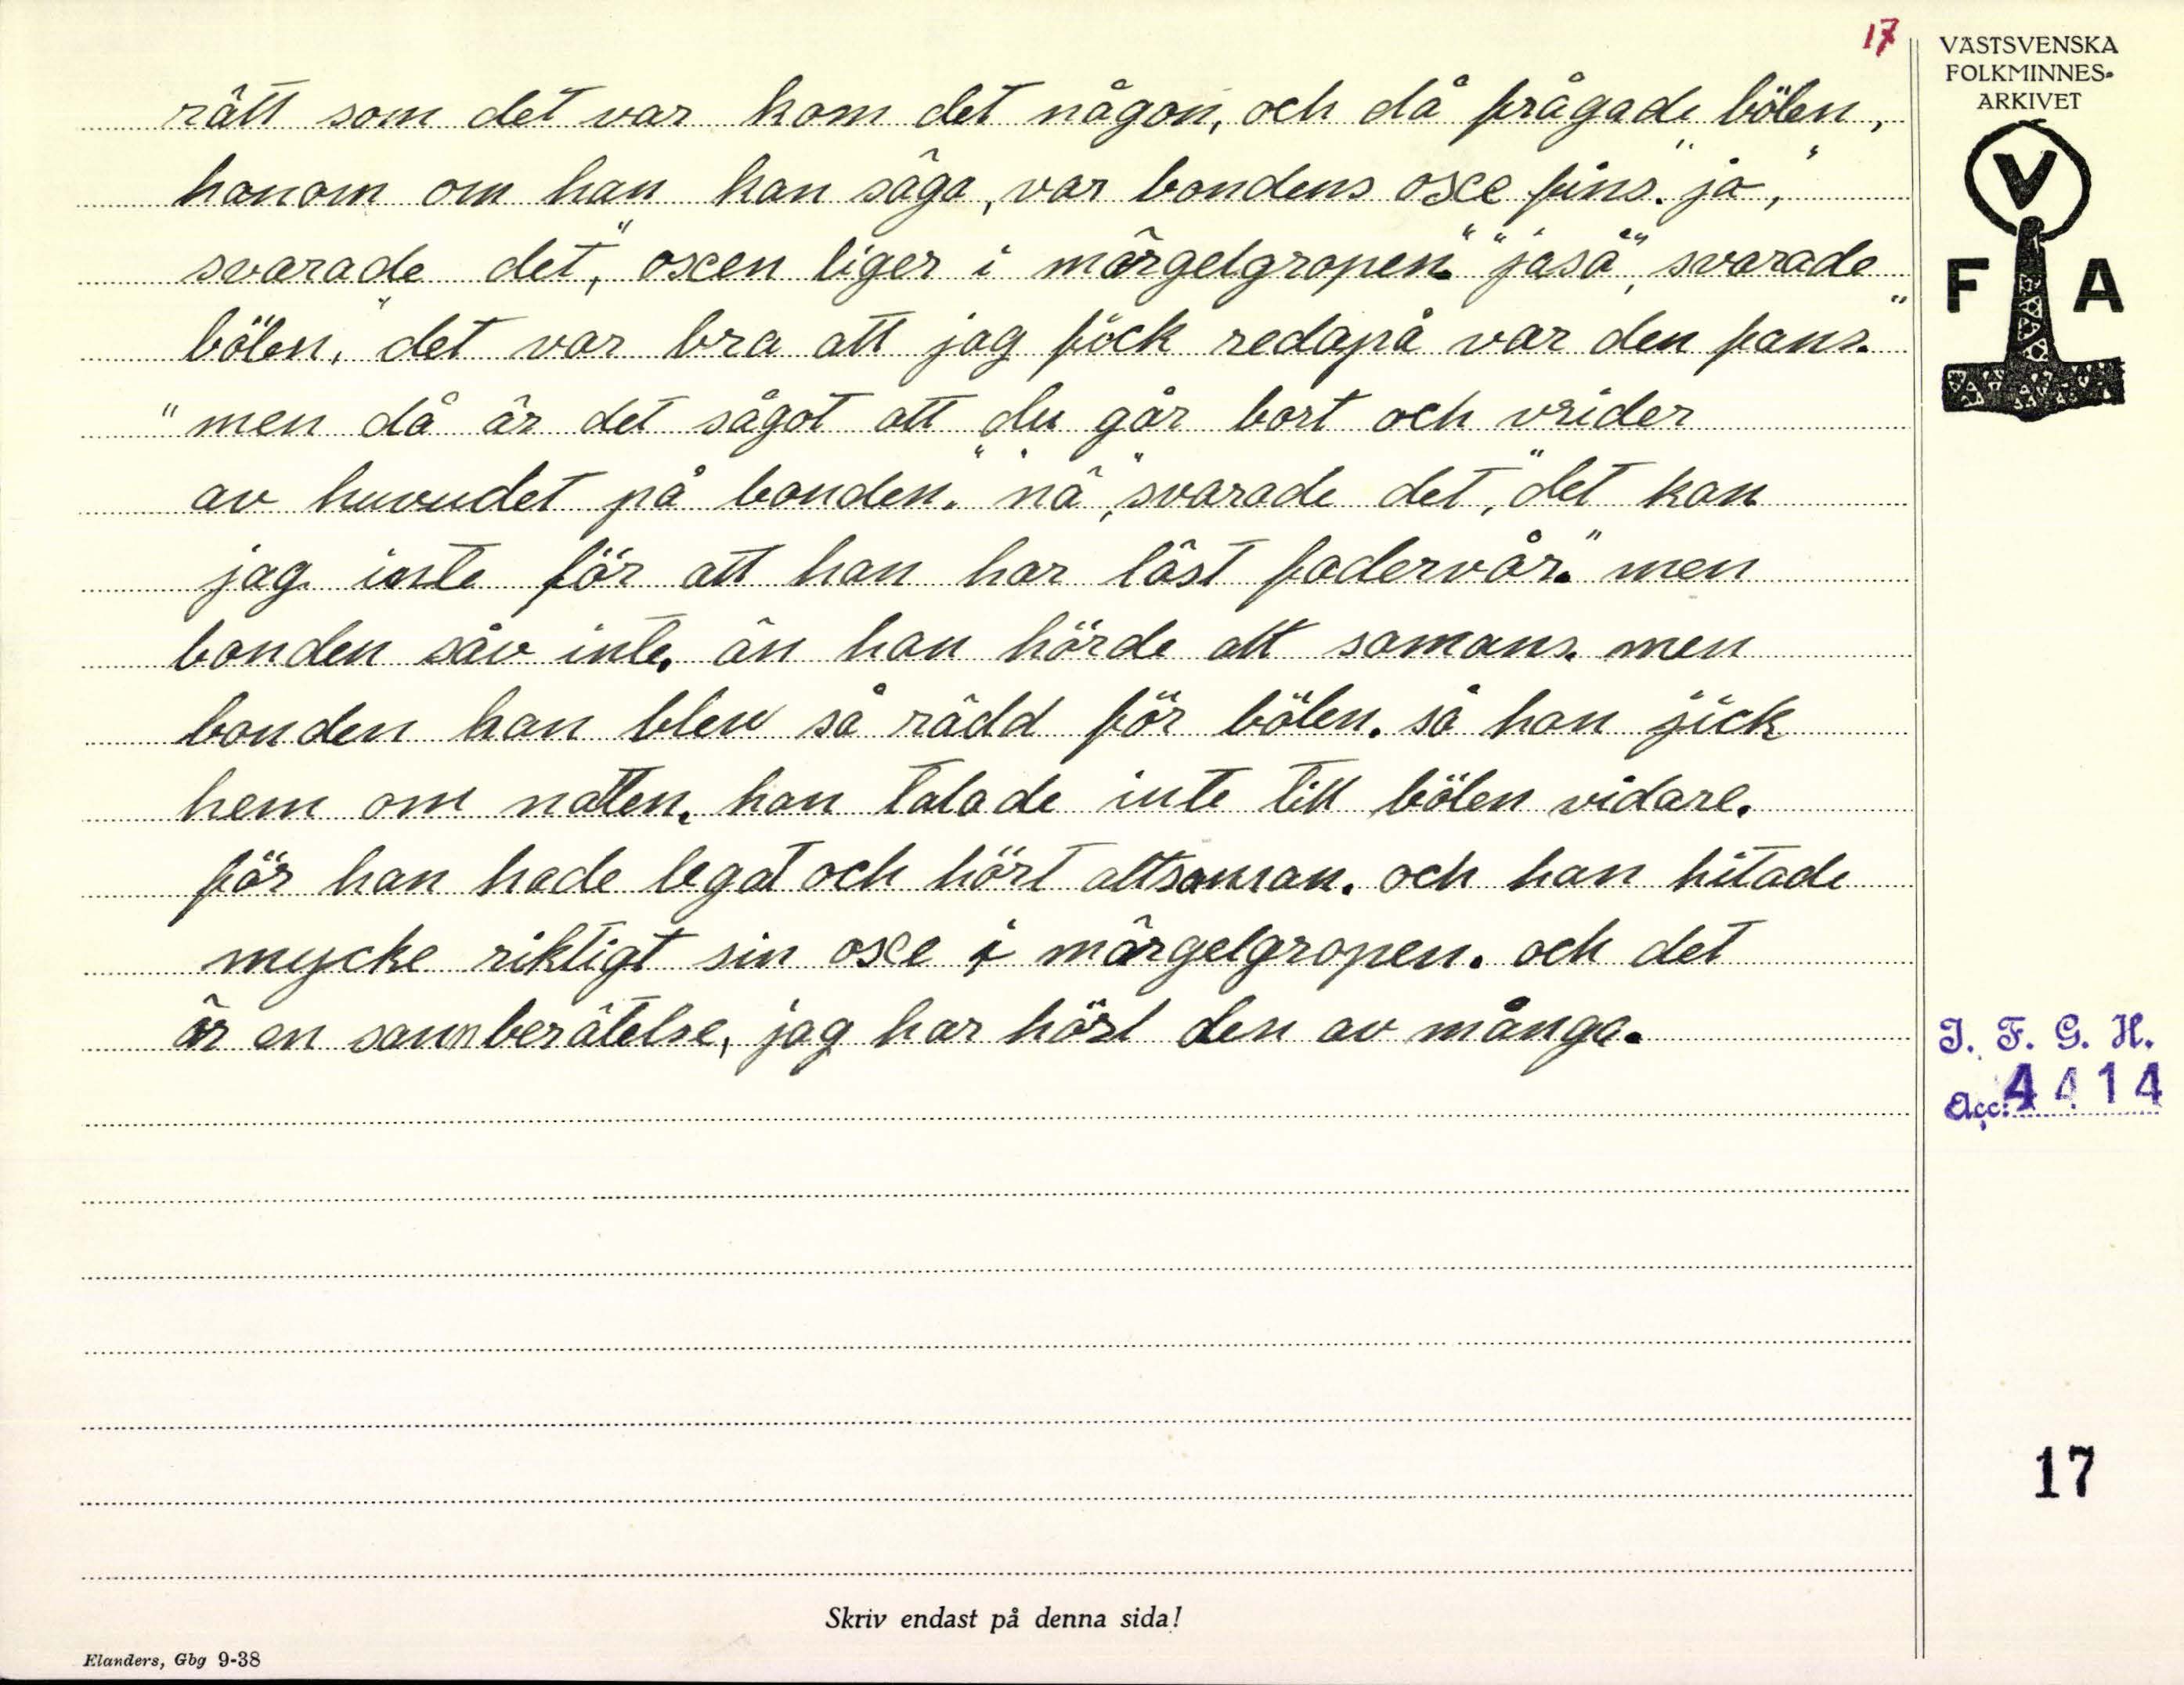 17
rätt som det var kom det någon, och då frågade bölen,
honom om han kan säga, var bondens oxe fins. "ja",
svarade det, "oxen liger i märgelgropen." "jaså", svarade
bölen, "det var bra att jag föck redapå var den fans."
"men då är det sågot att du går bort och vrider
av huvudet på bonden." "nä", svarade det, "det kan
jag inte för att han har läst fadervår." men
bonden såv inte, än han hörde alt samans. men
bonden han blew så rädd för bölen. så han jick
hem om natten, han talade inte till bölen vidare.
för han hade legat och hört altsaman. och han hitade
mycke riktigt sin oxe i märgelgropen. och det
är en sannberätelse, jag har hört den av många.
Skriv endast på denna sida!
Elanders, Gbg 9-38
VÄSTSVENSKA
FOLKMINNES-
ARKIVET
V
F A
I. F. G. H.
Acc. 4414
17